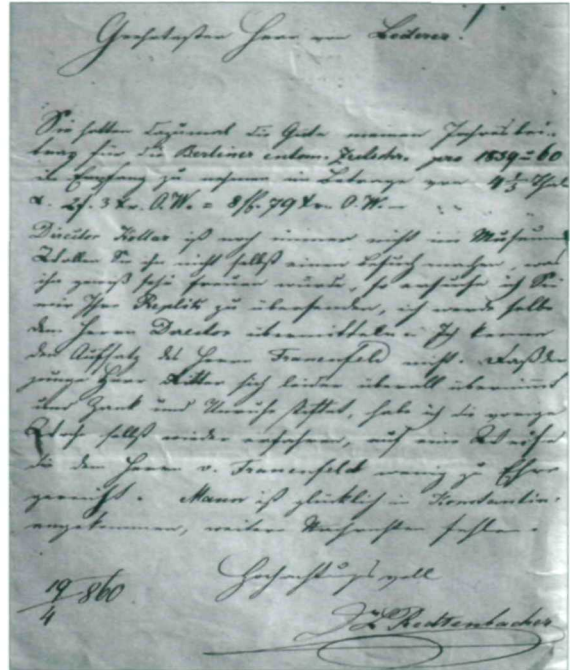 Geehrtester Herr von Lederer!
Sie hatten dazumal die Güte meinen Jahresbei-
trag für die Berliner entom. Zeitschr. pro 1859 = 60
in Empfang zu nehmen im Betrage von 4 1/3 Thal
2 f. 3 kr. O.W. = 8 f. 79 kr. O.W. —
Director Kollar ist noch immer nicht im Museum
Wollen Sie ihn nicht selbst einen Besuch machen, was
ihn gewiß sehr freuen würde, so ersuche ich Sie
mir Ihre Replik zu übersenden, ich werde selbe
dem Herrn Director übermitteln. Ich kenne
den Aufsatz des Herrn Frauenfeld nicht. Daß der
junge Herr Ritter sich leider überall übernimmt
und Zank und Unruhe stiftet, habe ich die vorige
Woche selbst wieder erfahren, auf eine Weise
die dem Herrn v. Frauenfeld wenig zu Ehre
gereicht. Mann ist glücklich in Konstantin.
angekommen, weitere Nachrichten fehlen.
Hochachtungsvoll
19/4 860
Redtenbacher